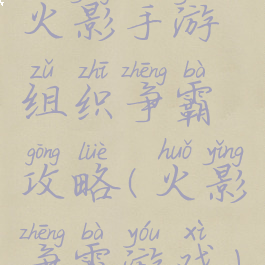 火影手游
zǔ zhī zhēng bà
组织争霸
gōng lüè huǒ yǐng
攻略(火影
zhēng bà yóu xì
争霸游戏)